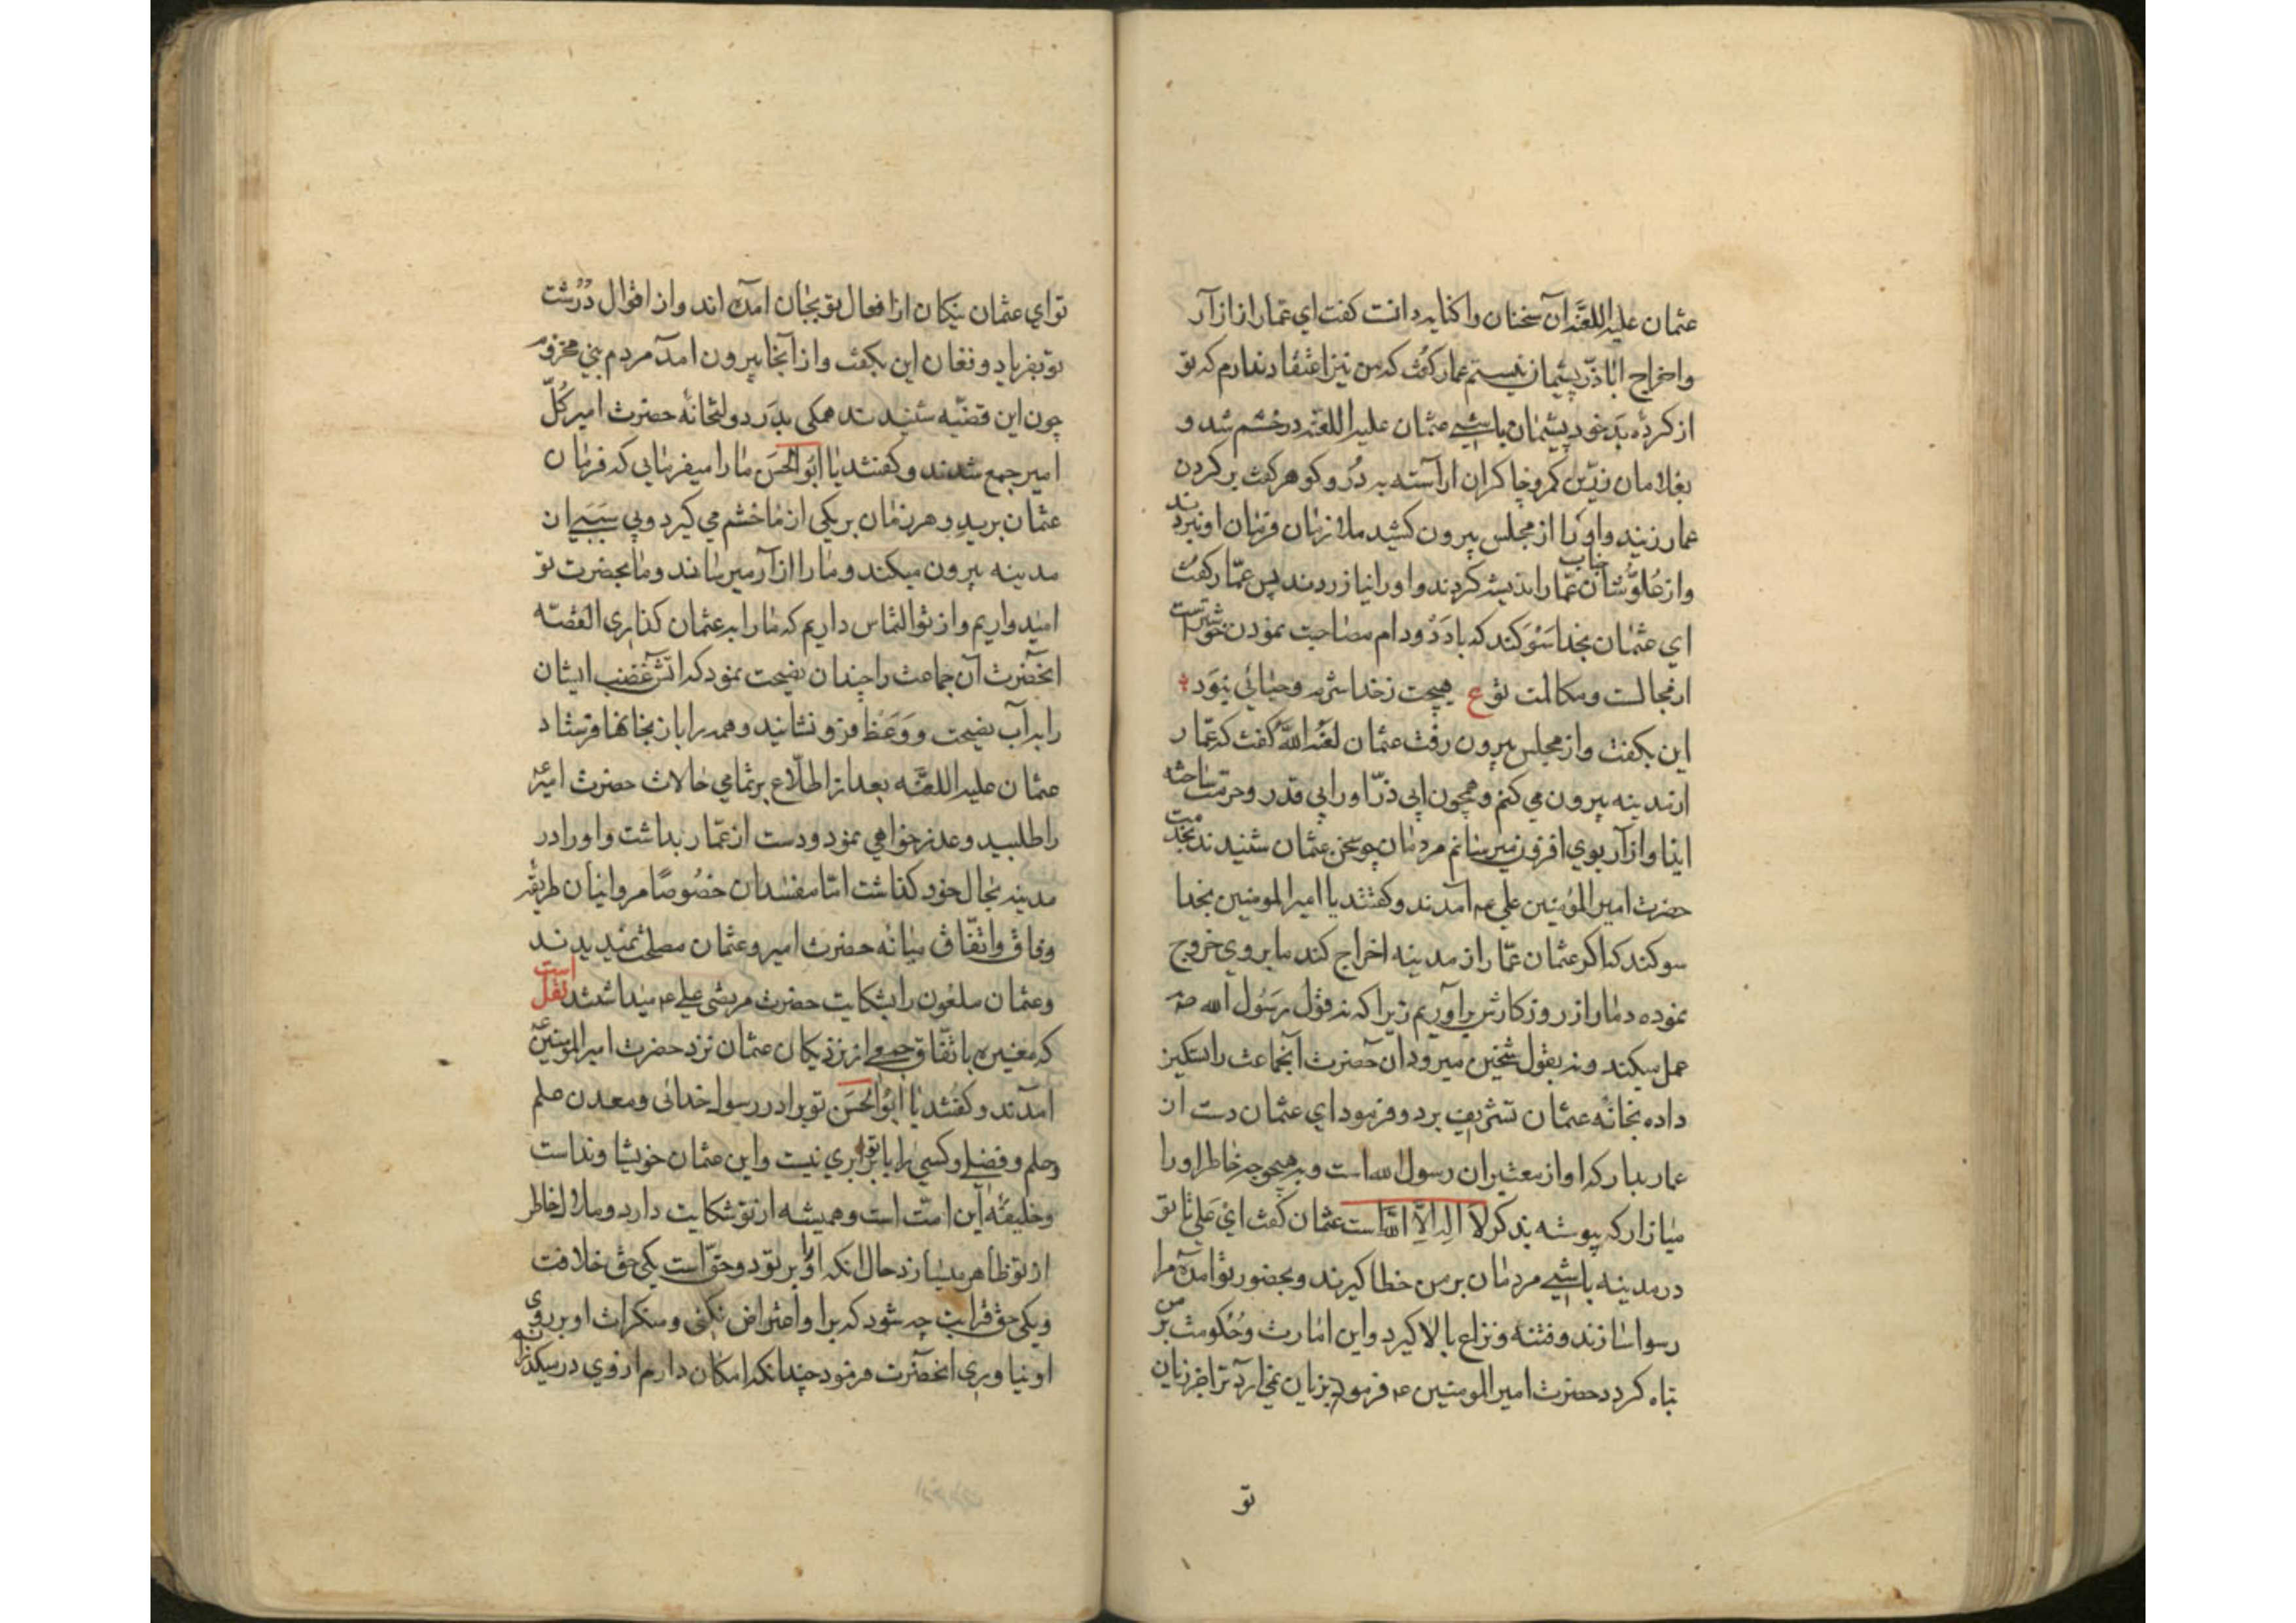 عثمان علیه اللعنه آن سخنان را کنایه دانست کفت ای عمار از ازار
و اخراج اباذر پشیمان نیستم عمار کفت که من نیز اعتقاد ندارم که تو
از کرده بد خود پشیمان باشی عثمان علیه اللعنه در خشم شد و
بغلامان زرین کمر و چاکران آراسته به در و کوهر کفت بر کردن
عمار زنید و او را از مجلس بیرون کشید ملازمان فرمان او نبردند
و از علو شان جناب عمار اندیشه کردند و او را نیازردند پس عمار کفت
ای عثمان بخدا سوکند که با دد و دام مصاحبت نمودن خوشترست
از مجالست و مکالمت تو ع هیچت ز خدا شرم و حیائی نبود
این بکفت و از مجلس بیرون رفت عثمان لعنه الله کفت که عمار
از مدینه بیرون می کنم و همچون ابی ذر او را بی قدر و حرمت ساخته
ایذا و ازار بوی افزون میرسانم مردمان چو سخن عثمان شنیدند بخدمت
حضرت امیر المؤمنین علی عم آمدند و کفتند یا امیر المومنین بخدا
سوکند که اکر عثمان عمار از مدینه اخراج کند ما بر وی خروج
نموده دمار از روزکارش براوریم زیرا که نه قول رسول الله صم
عمل میکند و نه بقول شیخین میرود ان حضرت آنجماعت را تسکین
داده بخانه عثمان تشریف برد و فرمود ای عثمان دست از
عمار بدار که او از معتبران رسول الله است و به هیچوجه خاطر او را
میازار که پیوسته بذکر لا اله الا الله است عثمان کفت ای علی تا تو
در مدینه باشی مردمان بر من خطا کیرند و بحضور تو آمده مرا
رسوا سازند و فتنه و نزاع بالا کیرد و این امارت و حکومت بر من
تباه کردد حضرت امیر المومنین عم فرمود بزیان نمی آرد ترا جز زبان
تو
تو ای عثمان نیکان از افعال تو بجان آمده اند و از اقوال درشت
تو بفریاد و فغان این بکفت و از آنجا بیرون آمد مردم بنی مخزوم
چون این قضیه شنیدند همکی بدر دولتخانه حضرت امیر کل
امیر جمع شدند و کفتند یا ابو الحسن ما را میفرمایی که فرمان
عثمان برید و هر زمان بر یکی از ما خشم می کیرد و بی سببی از
مدینه بیرون میکند و ما را ازار میرساند و ما بحضرت تو
امید واریم و از تو التماس داریم که ما را به عثمان کذاری القصه
انحضرت آن جماعت را چندان نصیحت نمود که آتش غضب ایشان
را به آب نصیحت و وعظ فرو نشانید و همه را باز بخانها فرستاد
عثمان علیه اللعنه بعد از اطلاع بر تمامی حالات حضرت امیر عم
را طلبید و عذر خواهی نمود و دست از عمار بداشت و او را در
مدینه بحال خود کذاشت اما مفسدان خصوصا مروانیان طریقه
وفاق و اتفاق میانه حضرت امیر و عثمان مصلحت نمیدیدند
و عثمان ملعون را بشکایت حضرت مرتضی علی عم میداشتند نقل است
که مغیره باتفاق جمعی از نزدیکان عثمان نزد حضرت امیر المومنین عم
آمدند و کفتند یا ابو الحسن تو برادر رسول خدائی و معدن علم
و حلم و فضلی و کسی را با تو برابری نیست و این عثمان خویشاوند است
و خلیفه این امت است و همیشه از تو شکایت دارد و ملال خاطر
از تو ظاهر میسازد حال انکه او را بر تو دو حق است یکی حق خلافت
و یکی حق قرابت چه شود که بر او اعتراض نکنی و منکرات او بر روی
او نیاوری انحضرت فرمود چندانکه امکان دارم از وی در میکذرانم